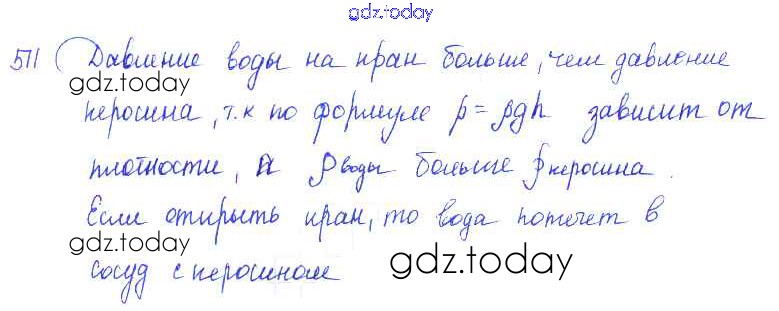 gdz.today
511 Давление воды на кран больше, чем давление
gdz.today
керосина, т.к по формуле p = ρgh зависит от
плотности, а ρ воды больше ρ керосина.
Если открыть кран, то вода потечет в
gdz.today
сосуд с керосином
gdz.today